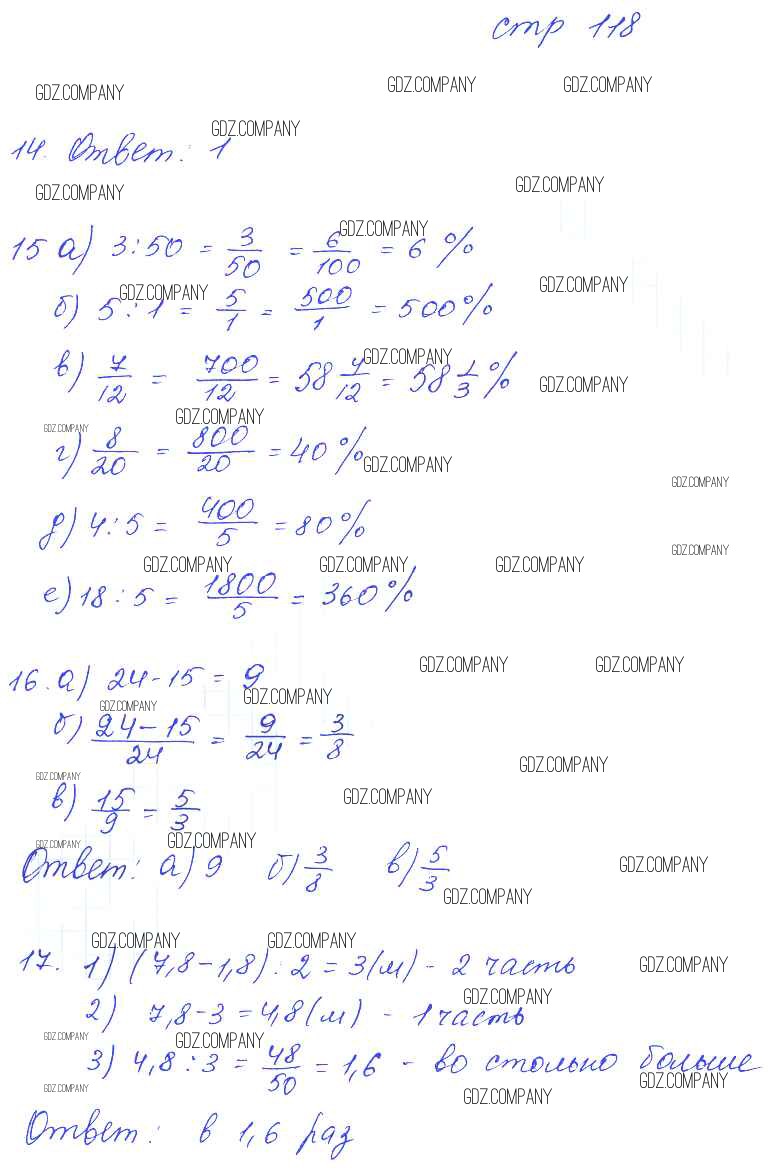 стр 118
GDZ.COMPANY GDZ.COMPANY GDZ.COMPANY
GDZ.COMPANY
14. Ответ: 1
GDZ.COMPANY GDZ.COMPANY
GDZ.COMPANY
15 а) 3:50 = 3/50 = 6/100 = 6 %
GDZ.COMPANY GDZ.COMPANY
б) 5:1 = 5/1 = 500/1 = 500%
GDZ.COMPANY
в) 7/12 = 700/12 = 58 4/12 = 58 1/3 %
GDZ.COMPANY
GDZ.COMPANY GDZ.COMPANY
г) 8/20 = 800/20 = 40 %
GDZ.COMPANY
GDZ.COMPANY
д) 4:5 = 400/5 = 80%
GDZ.COMPANY
GDZ.COMPANY GDZ.COMPANY GDZ.COMPANY
е) 18:5 = 1800/5 = 360%
GDZ.COMPANY GDZ.COMPANY
16. а) 24-15 = 9
GDZ.COMPANY GDZ.COMPANY
б) 24-15/24 = 9/24 = 3/8
GDZ.COMPANY
GDZ.COMPANY GDZ.COMPANY
в) 15/9 = 5/3
GDZ.COMPANY GDZ.COMPANY
Ответ: а) 9 б) 3/8 в) 5/3
GDZ.COMPANY
GDZ.COMPANY
GDZ.COMPANY GDZ.COMPANY
17. 1) (7,8-1,8):2 = 3(м) - 2 часть
GDZ.COMPANY
GDZ.COMPANY
2) 7,8-3 = 4,8(м) - 1 часть
GDZ.COMPANY GDZ.COMPANY
3) 4,8:3 = 48/50 = 1,6 - во столько больше
GDZ.COMPANY GDZ.COMPANY GDZ.COMPANY
Ответ: в 1,6 раз